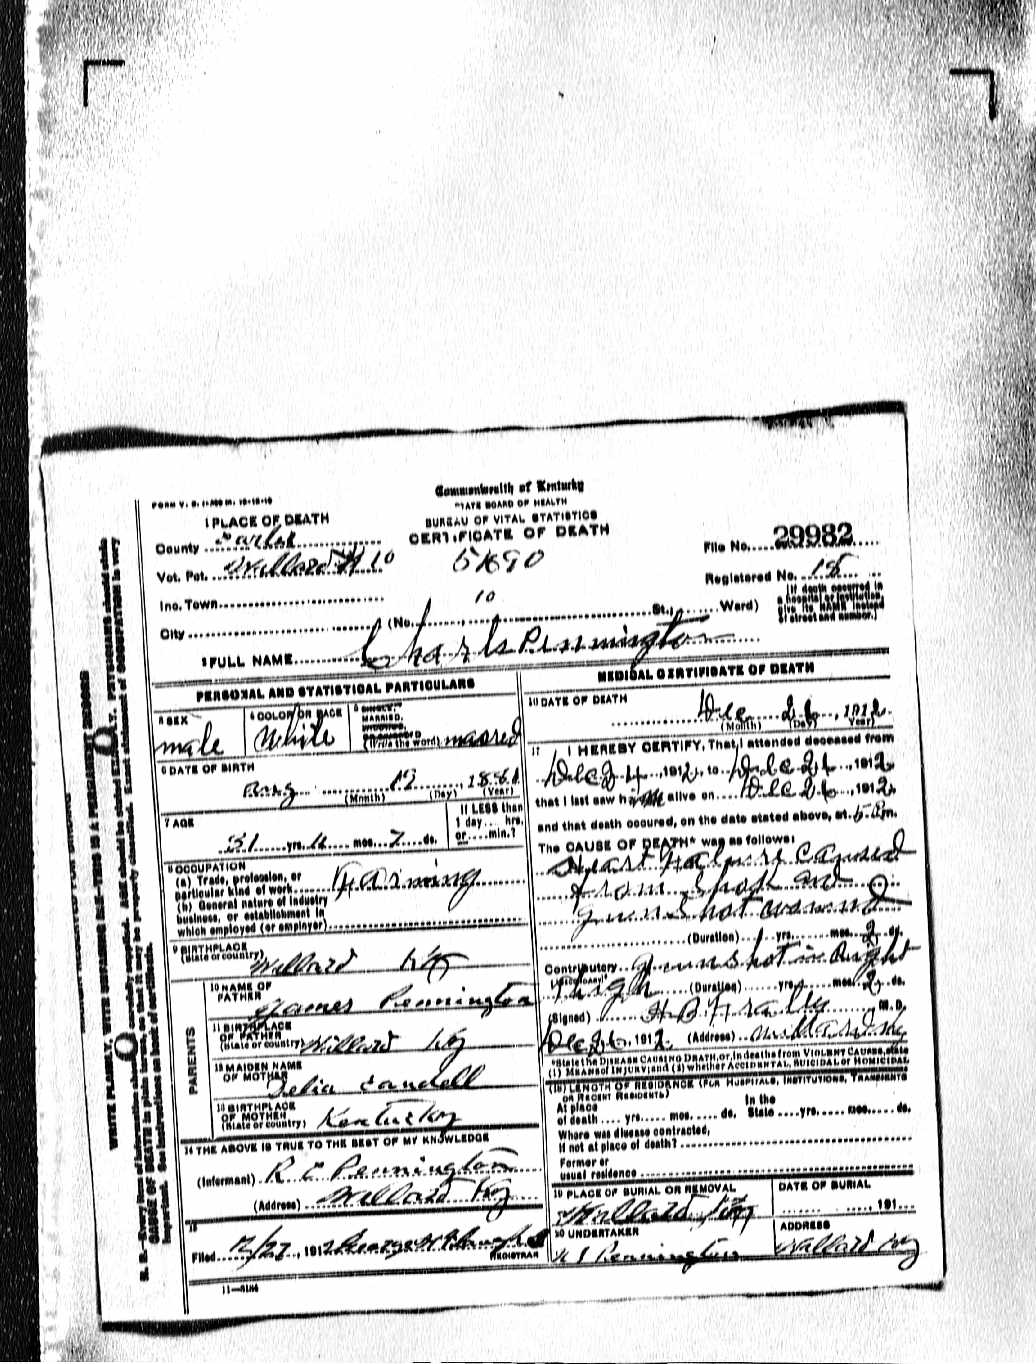 FORM V. S.
Commonwealth of Kentucky
STATE BOARD OF HEALTH
BUREAU OF VITAL STATISTICS
CERTIFICATE OF DEATH
1 PLACE OF DEATH
County Carter
Vot. Pct. Willard # 10
51690
File No. 29982
Registered No. 18
Inc. Town
10
City (No. St., Ward)
[If death occurred in
a hospital or institution,
give its NAME instead
of street and number.]
2 FULL NAME Charls Pennington
PERSONAL AND STATISTICAL PARTICULARS
3 SEX
male
4 COLOR OR RACE
White
5 SINGLE,
MARRIED,
(Write the word) maared
6 DATE OF BIRTH
Aug 19 1881
(Month) (Day) (Year)
7 AGE
31 yrs. 4 mos. 7 ds.
If LESS than
1 day hrs.
or min.?
8 OCCUPATION
(a) Trade, profession, or
particular kind of work Farming
(b) General nature of industry
business, or establishment in
which employed (or employer)
9 BIRTHPLACE
(State or country) Willard Ky
PARENTS
10 NAME OF
FATHER James Pennington
11 BIRTHPLACE
OF FATHER
(State or country) Willard Ky
12 MAIDEN NAME
OF MOTHER Delia Caudell
13 BIRTHPLACE
OF MOTHER
(State or country) Kentucky
14 THE ABOVE IS TRUE TO THE BEST OF MY KNOWLEDGE
(Informant) R C Pennington
(Address) Willard Ky
15
Filed 12/27, 1912 George
REGISTRAR
11—5184
MEDICAL CERTIFICATE OF DEATH
16 DATE OF DEATH
Dec 26, 1912
(Month) (Day) (Year)
17 I HEREBY CERTIFY, That I attended deceased from
Dec 24, 1912, to Dec 26, 1912
that I last saw him alive on Dec 26, 1912,
and that death occured, on the date stated above, at 5 m.
The CAUSE OF DEATH* was as follows:
Heart Failure caused
from Shock and
gunshot wound
(Duration) yrs. mos. 2 ds.
Contributory gunshot in Right
(SECONDARY) Thigh (Duration) yrs. mos. 2 ds.
(Signed) H B Fraley M. D.
Dec 26, 1912 (Address) Willard Ky
*State the DISEASE CAUSING DEATH, or, in deaths from VIOLENT CAUSES, state
(1) MEANS OF INJURY; and (2) whether ACCIDENTAL, SUICIDAL or HOMICIDAL
(18) LENGTH OF RESIDENCE (FOR HOSPITALS, INSTITUTIONS, TRANSIENTS
OR RECENT RESIDENTS)
At place In the
of death yrs. mos. ds. State yrs. mos. ds.
Where was disease contracted,
if not at place of death?
Former or
usual residence
19 PLACE OF BURIAL OR REMOVAL
Willard Ky
DATE OF BURIAL
191
20 UNDERTAKER
Pennington
ADDRESS
Willard Ky
WRITE PLAINLY, WITH UNFADING INK—THIS IS A PERMANENT RECORD
N. B.—Every item of information should be carefully supplied. AGE should be stated EXACTLY. PHYSICIANS should state
CAUSE OF DEATH in plain terms, so that it may be properly classified. Exact statement of OCCUPATION is very
important. See instructions on back of certificate.